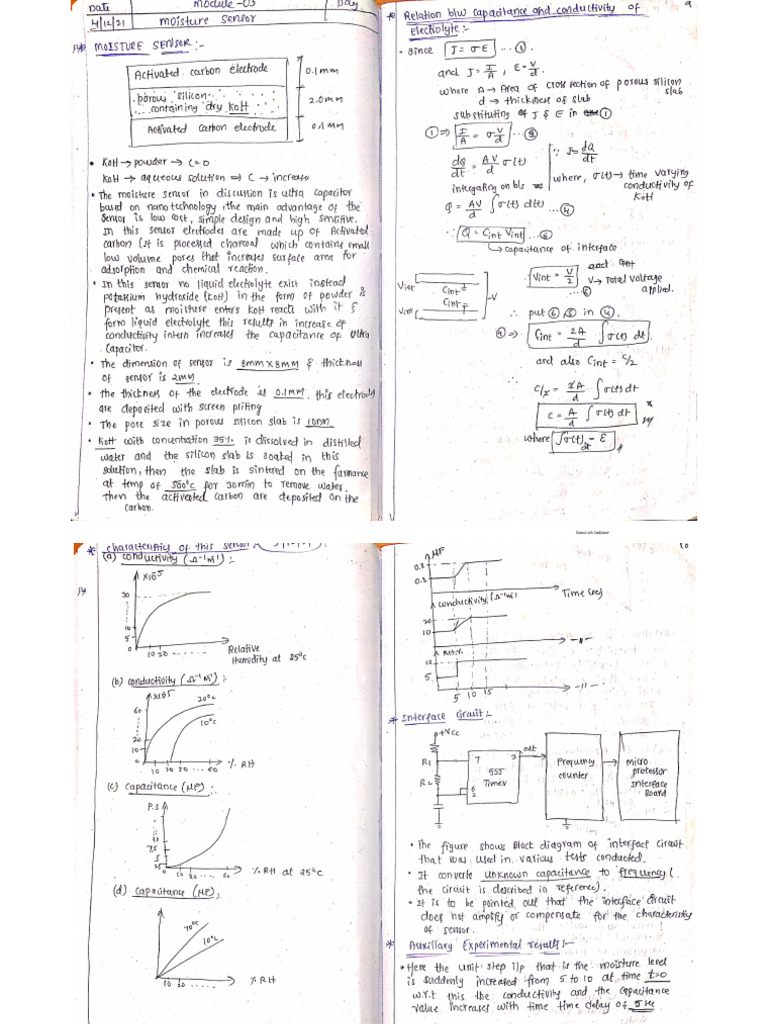 Date
Module-03
Day
4/12/21
moisture sensor
MOISTURE SENSOR:-
Activated carbon electrode
0.1mm
porous silicon
containing dry KOH
2.0mm
Activated Carbon electrode
0.1mm
• KOH → powder → C=0
KOH → aqueous solution ⇒ C → increase
• The moisture sensor in discussion is ultra capacitor
based on nanotechnology the main advantage of the
sensor is low cost, simple design and high sensitive.
In this sensor electrodes are made up of Activated
carbon (It is processed charcoal which contains small
low volume pores that increases surface area for
adsorption and chemical reaction.
• In this sensor no liquid electrolyte exist instead
potassium hydroxide (KOH) in the form of powder is
present as moisture enters KOH reacts with it &
form liquid electrolyte this results in increase of
conductivity intern increases the capacitance of ultra
capacitor.
• The dimension of sensor is 8mm x 8mm & thickness
of sensor is 2mm
• The thickness of the electrode is 0.1mm, this electrods
are deposited with screen priting
• The pore size in porous silicon slab is 10nm
• KOH with concentration 35% is dissolved in distilled
water and the silicon slab is soaked in this
solution, then the slab is sintered on the farnance
at temp of 500°C for 30min to remove water.
then the activated carbon are deposited on the
carbon.
* Relation b/w capacitance and conductivity of
electrolyte:-
• Since J = σE ...①.
and J = I/A , E = V/d.
where A → Area of cross section of porous silicon
slab
d → thickness of slab
substituting J & E in ①
① ⇒ I/A = σ V/d ...③
dQ/dt = AV/d σ(t)
∵ I = dQ/dt
where, σ(t) → time varying
conductivity of
KOH
integating on b/s
Q = AV/d ∫σ(t) d(t) ...④
∴ Q = Cint Vint ...⑤
→ capacitance of interface
Vint
Cint
Cint
Vint
V
Vint = V/2
...⑥
V → Total voltage
applied.
∴ put ⑥ ⑤ in ④.
④ ⇒ Cint = 2A/d ∫σ(t) dt.
and also Cint = C/2
C/2 = 2A/d ∫σ(t)dt
C = A/d ∫σ(t)dt
where ∫σ(t)dt = E
* characteristics of this sensor
(a) conductivity (Ω⁻¹m⁻¹):-
x10⁻⁵
30
10
5
0
10 20 ......
Relative
Humidity at 25°C
(b) conductivity (Ω⁻¹m⁻¹):
x10⁻⁵
60
20
10
0
20°C
10°C
10 20 30 .... 60
% RH
(c) Capacitance (μF):
0
10 20 .... 60
% RH at 25°C
(d) Capacitance (μF).
70°C
10°C
0
10 20 ....
% RH
μF
Time (sec)
conductivity (Ω⁻¹m⁻¹)
20
10
-11-
RH%
10
5
5 10 15
-11-
* Interface Circuit:-
+Vcc
R1
R2
7
3
555
Timer
6
2
out
Frequency
counter
micro
professor
Interface
Board
• The figure shows Block diagram of interfact circuit
that was used in various tests conducted.
• It converts unknown capacitance to frequency (
the circuit is described in reference).
• It is to be pointed out that the interface circuit
does not amplify or compensate for the characteristics
of sensor.
* Auxillary Experimental results:-
• Here the unit step i/p that is the moisture level
is suddenly increased from 5 to 10 at time t=0
w.r.t this the conductivity and the capacitance
value increases with time time delay of 5 sec